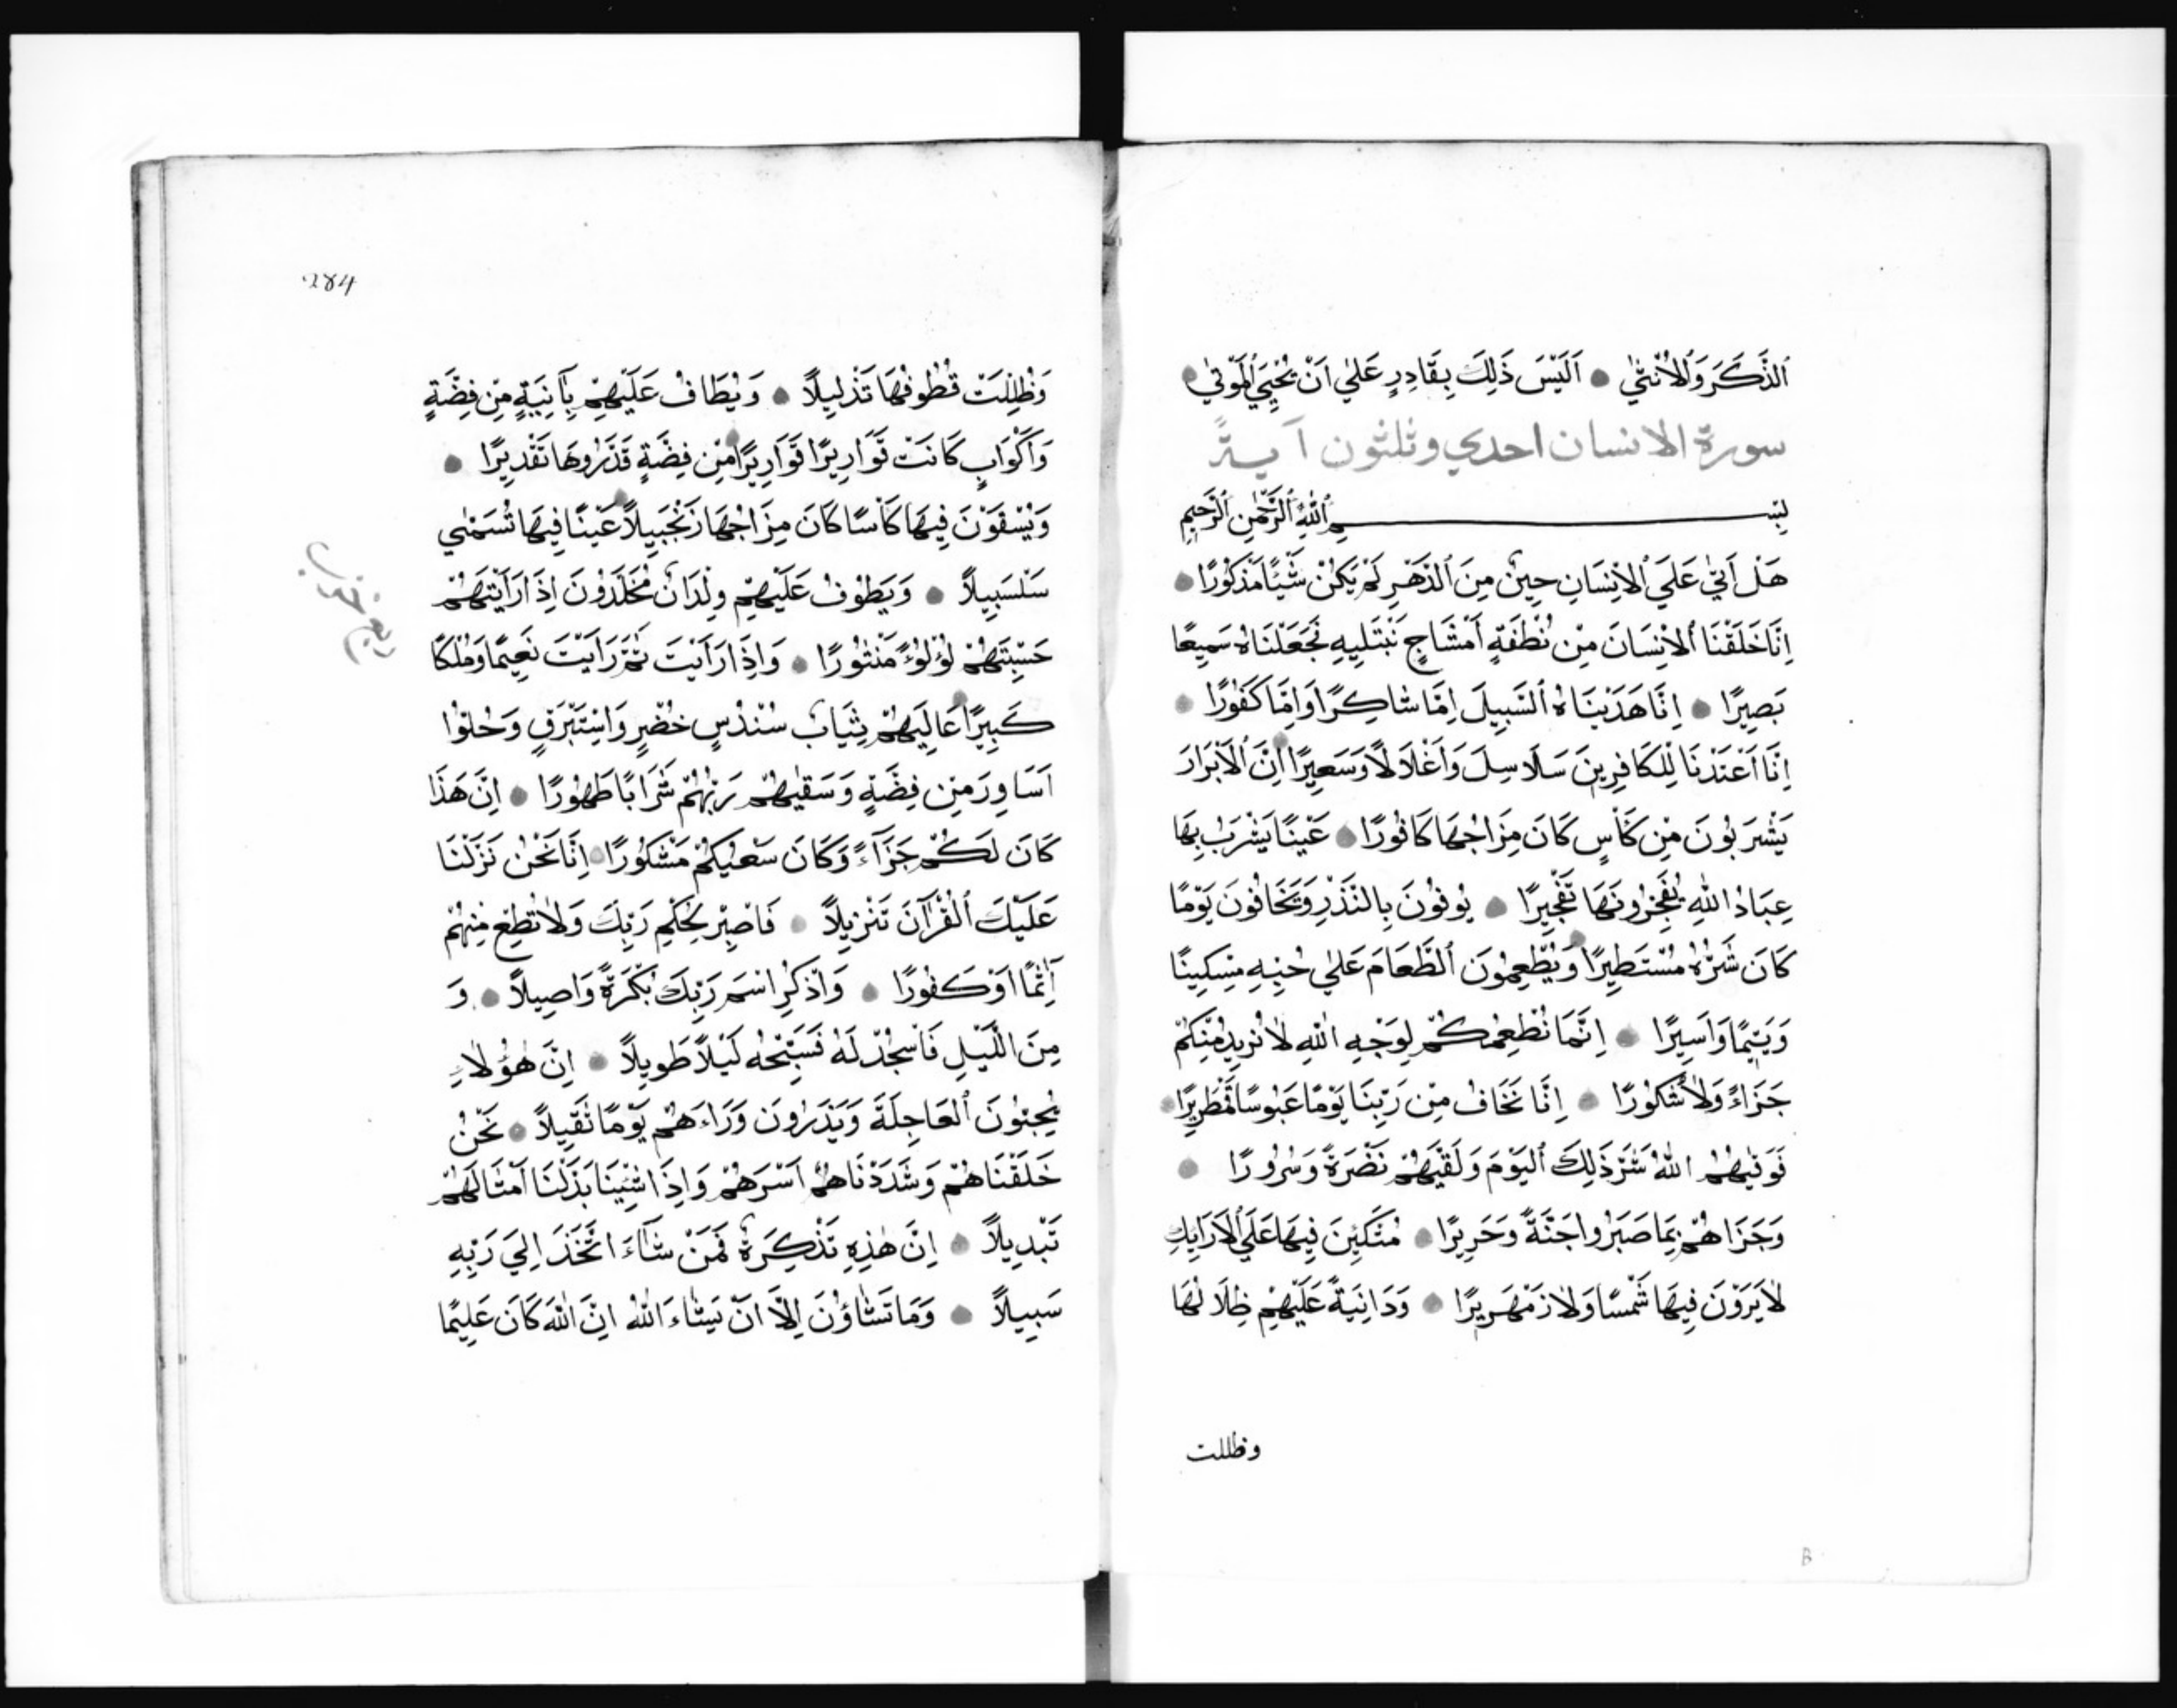 اَلذَّكَرَ وَاَلْاُنْثٰي اَلَيْسَ ذَلِكَ بِقَادِرٍ عَلٰي اَنْ يُحْيِيَ اَلْمَوْتٰي
سورة الانسان احدي وثلثون آية
بِسْمِ اَللّٰهِ اَلرَّحْمٰنِ اَلرَّحِيمِ
هَلْ اَتٰي عَلَيَ اَلاِنْسَانِ حِينٌ مِنَ اَلدَّهْرِ لَمْ يَكُنْ شَيْئًا مَذْكُورًا
اِنَّا خَلَقْنَا اَلاِنْسَانَ مِنْ نُطْفَةٍ اَمْشَاجٍ نَبْتَلِيهِ فَجَعَلْنَاهُ سَمِيعًا
بَصِيرًا اِنَّا هَدَيْنَاهُ اَلسَّبِيلَ اِمَّا شَاكِرًا وَاِمَّا كَفُورًا
اِنَّا اَعْتَدْنَا لِلْكَافِرِينَ سَلَاسِلَ وَاَغْلَالًا وَسَعِيرًا اِنَّ اَلْاَبْرَارَ
يَشْرَبُونَ مِنْ كَاْسٍ كَانَ مِزَاجُهَا كَافُورًا عَيْنًا يَشْرَبُ بِهَا
عِبَادُ اللّٰهِ يُفَجِّرُونَهَا تَفْجِيرًا يُوفُونَ بِالنَّذْرِ وَيَخَافُونَ يَوْمًا
كَانَ شَرُّهُ مُسْتَطِيرًا وَيُطْعِمُونَ اَلطَّعَامَ عَلٰي حُبِّهِ مِسْكِينًا
وَيَتِيمًا وَاَسِيرًا اِنَّمَا نُطْعِمُكُمْ لِوَجْهِ اللّٰهِ لَا نُرِيدُ مِنْكُمْ
جَزَاءً وَلَا شُكُورًا اِنَّا نَخَافُ مِنْ رَبِّنَا يَوْمًا عَبُوسًا قَمْطَرِيرًا
فَوَقٰيهُمُ اللّٰهُ شَرَّ ذَلِكَ اَلْيَوْمِ وَلَقّٰيهُمْ نَضْرَةً وَسُرُورًا
وَجَزَاهُمْ بِمَا صَبَرُوا جَنَّةً وَحَرِيرًا مُتَّكِئِينَ فِيهَا عَلَي اَلْاَرَايِكِ
لَا يَرَوْنَ فِيهَا شَمْسًا وَلَا زَمْهَرِيرًا وَدَانِيَةً عَلَيْهِمْ ظِلَالُهَا
وظللت
B
284
وَظُلِّلَتْ قُطُوفُهَا تَذْلِيلًا وَيُطَافُ عَلَيْهِمْ بِاٰنِيَةٍ مِنْ فِضَّةٍ
وَاَكْوَابٍ كَانَتْ قَوَارِيرًا قَوَارِيرًا مِنْ فِضَّةٍ قَدَّرُوهَا تَقْدِيرًا
وَيُسْقَوْنَ فِيهَا كَاْسًا كَانَ مِزَاجُهَا زَنْجَبِيلًا عَيْنًا فِيهَا تُسَمّٰي
سَلْسَبِيلًا وَيَطُوفُ عَلَيْهِمْ وِلْدَانٌ مُخَلَّدُونَ اِذَا رَاَيْتَهُمْ
حَسِبْتَهُمْ لُؤْلُؤً مَنْثُورًا وَاِذَا رَاَيْتَ ثَمَّ رَاَيْتَ نَعِيمًا وَمُلْكًا
كَبِيرًا عَالِيَهُمْ ثِيَابُ سُنْدُسٍ خُضْرٍ وَاِسْتَبْرَقٍ وَحُلُّوا
اَسَاوِرَ مِنْ فِضَّةٍ وَسَقٰيهُمْ رَبُّهُمْ شَرَابًا طَهُورًا اِنَّ هَذَا
كَانَ لَكُمْ جَزَآءً وَكَانَ سَعْيُكُمْ مَشْكُورًا اِنَّا نَحْنُ نَزَّلْنَا
عَلَيْكَ اَلْقُرْآنَ تَنْزِيلًا فَاصْبِرْ لِحُكْمِ رَبِّكَ وَلَا تُطِعْ مِنْهُمْ
آثِمًا اَوْ كَفُورًا وَاذْكُرِ اسْمَ رَبِّكَ بُكْرَةً وَاَصِيلًا وَ
مِنَ اللَّيْلِ فَاسْجُدْ لَهُ فَسَبِّحْهُ لَيْلًا طَوِيلًا اِنَّ هٰؤُلَاءِ
يُحِبُّونَ اَلْعَاجِلَةَ وَيَذَرُونَ وَرَاءَهُمْ يَوْمًا ثَقِيلًا نَحْنُ
خَلَقْنَاهُمْ وَشَدَدْنَاهُمْ اَسْرَهُمْ وَاِذَا شِئْنَا بَدَّلْنَا اَمْثَالَهُمْ
تَبْدِيلًا اِنَّ هٰذِهِ تَذْكِرَةٌ فَمَنْ شَآءَ اتَّخَذَ اِلٰيَ رَبِّهِ
سَبِيلًا وَمَا تَشَاؤُنَ اِلَّا اَنْ يَشَاءَ اَللّٰهُ اِنَّ اللّٰهَ كَانَ عَلِيمًا